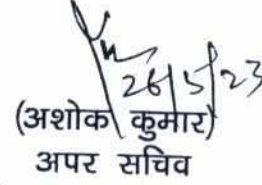 26/5/23
(अशोक कुमार)
अपर सचिव